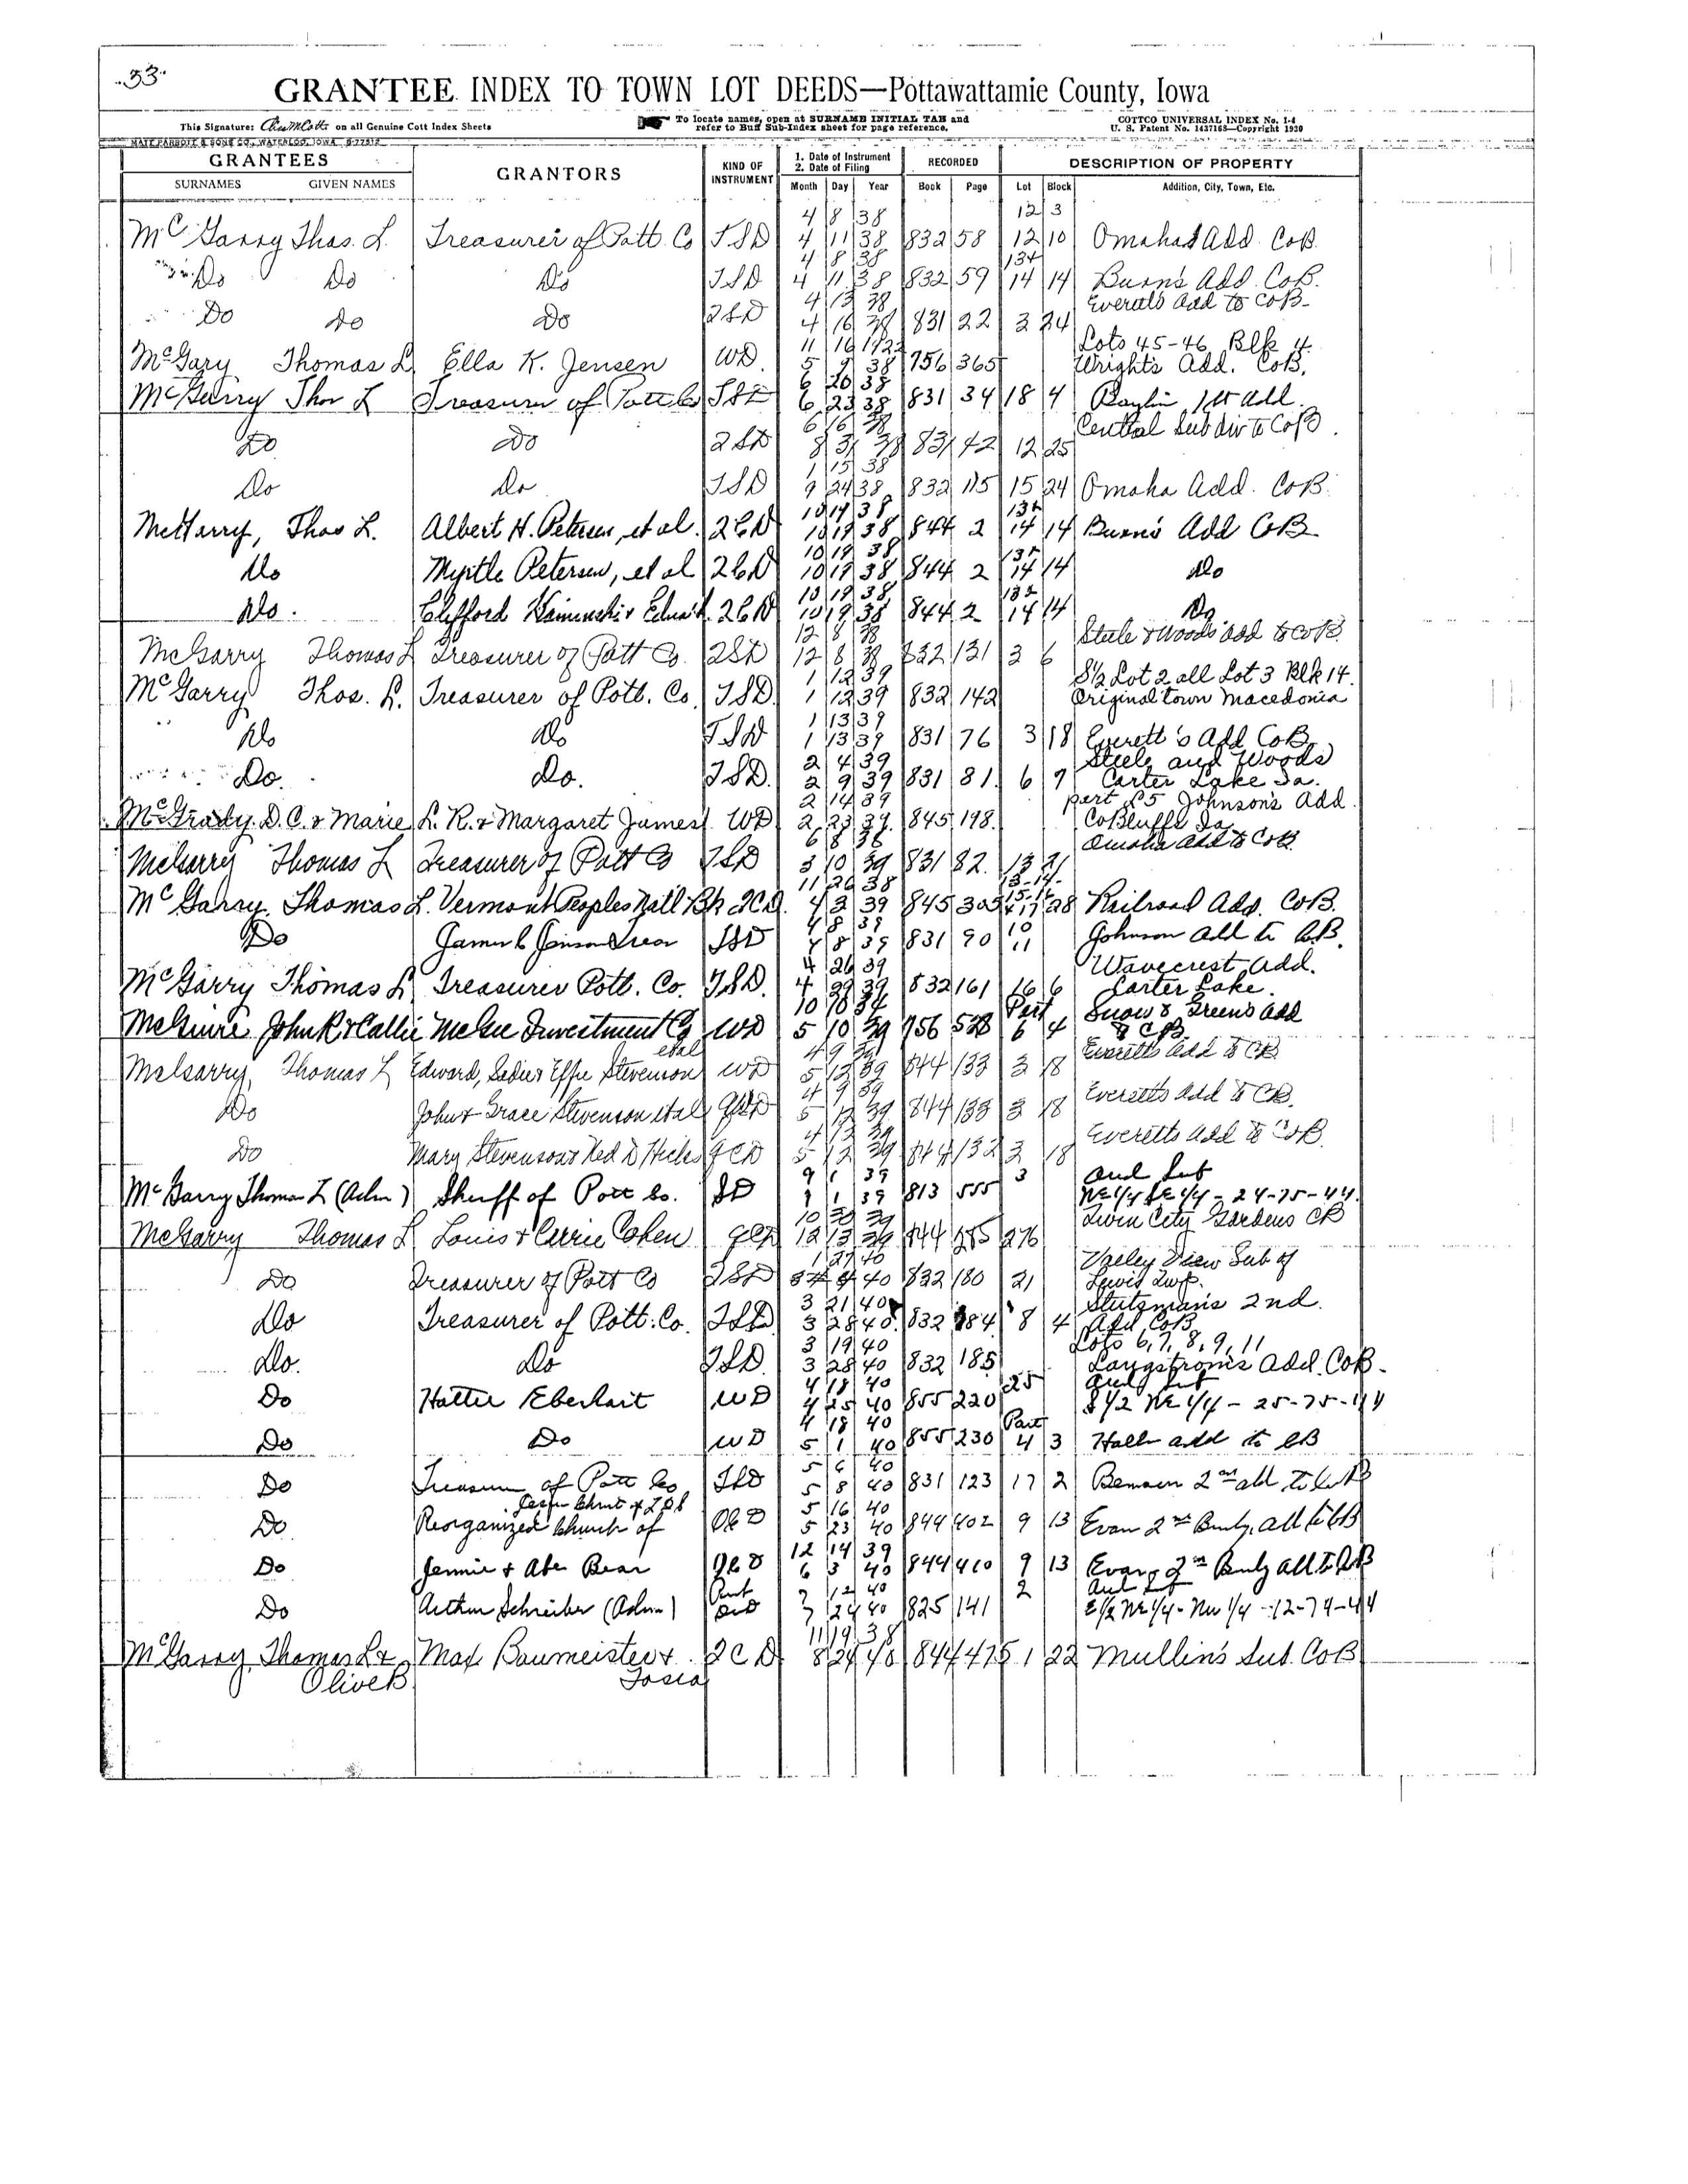 53
GRANTEE INDEX TO TOWN LOT DEEDS—Pottawattamie County, Iowa
This Signature: on all Genuine Cott Index Sheets
To locate names, open at SURNAME INITIAL TAB and
refer to Buff Sub-Index sheet for page reference.
COTTCO UNIVERSAL INDEX No. 1-4
U. S. Patent No. 1437168—Copyright 1920
MATT PARROTT & SONS CO., WATERLOO, IOWA
GRANTEES GRANTORS KIND OF INSTRUMENT 1. Date of Instrument 2. Date of Filing RECORDED DESCRIPTION OF PROPERTY
SURNAMES GIVEN NAMES Month Day Year Book Page Lot Block Addition, City, Town, Etc.
4 8 38 12 3
McGarry Thos. L. Treasurer of Pott. Co TSD 4 11 38 832 58 12 10 Omaha Add CoB
4 8 38 13+
Do Do Do TSD 4 11 38 832 59 14 14 Burn's Add CoB.
4 13 38 Everett's Add to CoB
Do Do Do TSD 4 16 38 831 22 3 24
11 16 1922 Lots 45-46 Blk 4
McGary Thomas L Ella K. Jensen WD 5 9 38 756 365 Wright's Add. CoB.
6 20 38
McGarry Thos L Treasurer of Pott Co TSD 6 23 38 831 34 18 4 1st Add.
6 16 38 Central Sub div to CoB.
Do Do TSD 8 31 38 831 42 12 25
1 15 38
Do Do TSD 9 24 38 832 115 15 24 Omaha Add. CoB
10 14 38 13+
McGarry, Thos L. Albert H. Petersen, et al. QCD 10 19 38 844 2 14 14 Burn's Add CoB
10 19 38 13+
Do Myrtle Petersen, et al QCD 10 19 38 844 2 14 14 Do
10 19 38 13+
Do. Clifford QCD 10 19 38 844 2 14 14 Do
12 8 38 Steele & Woods add to CoB
McGarry Thomas L Treasurer of Pott Co. TSD 12 8 38 832 131 3 6
1 12 39 S½ Lot 2 all Lot 3 Blk 14.
McGarry Thos. L. Treasurer of Pott. Co. TSD. 1 12 39 832 142 Original town Macedonia
1 13 39
Do Do TSD 1 13 39 831 76 3 18 Everett's Add CoB
2 4 39 Steele and Woods
Do. Do. TSD. 2 9 39 831 81 6 7 Carter Lake Ia.
2 14 39 part L5 Johnson's Add
McGrady. D.C. & Marie L. R. & Margaret James WD 2 23 39 845 198. CoBluffs Ia
6 8 36 Omaha Add to CoB
McGarry Thomas L Treasurer of Pott Co TSD 3 10 39 831 82. 13 21
11 26 38 13-14-
McGarry. Thomas L. Vermont Peoples Natl Bk QCD. 4 3 39 845 305 15-16 & 17 28 Railroad Add. CoB.
4 8 39 10
Do TSD 4 8 39 831 90 11 Johnson Add to CB.
4 26 39 Wavecrest Add.
McGarry Thomas L Treasurer Pott. Co. TSD. 4 29 39 832 161 16 6 Carter Lake.
10 10 34 Part Snow & Green's Add
McGuire John R & Callie McGee Investment Co WD 5 10 39 756 528 6 4
et al 4 9 39 Everetts Add to CB
McGarry, Thomas L Edward, Sadie & Effie Stevenson WD 5 12 39 844 133 3 18
4 9 39 Everetts Add to CB.
Do John & Grace Stevenson et al QCD 5 12 39 844 133 3 18
4 13 39 Everetts Add to CoB.
Do Mary Stevenson & Ned D Hicks QCD 5 12 39 844 132 3 18
9 1 39 3 Aud Sub
McGarry Thomas L (Adm) Sheriff of Pott Co. SD 9 1 39 813 555 NE 1/4 SE 1/4 - 24-75-44.
10 30 39 Twin City Gardens CB
McGarry Thomas L Louis & Carrie Cohen QCD 12 13 39 844 285 276
1 27 40 Valley View Sub of
Do Treasurer of Pott Co TSD 40 832 180 21 Lewis Twp.
3 21 40 Stutzman's 2nd.
Do Treasurer of Pott. Co. TSD 3 28 40 832 184 8 4 Add CoB
3 19 40 Lots 6, 7, 8, 9, 11
Do. Do TSD. 3 28 40 832 185 Langstrom's Add. CoB.
4 18 40 25 Aud Sub
Do Hattie Eberhart WD 4 25 40 855 220 S 1/2 NE 1/4 - 25-75-44
4 18 40 Part
Do Do WD 5 1 40 855 230 4 3 Halls add to CB
5 6 40
Do Treasurer of Pott Co TSD 5 8 40 831 123 17 2 Benson 2nd add to CoB
Jesus Christ of LDS 5 16 40
Do Reorganized Church of QCD 5 23 40 844 402 9 13 Evans 2nd add to CB
12 14 39
Do Jennie & Abe Bear QCD 6 3 40 844 410 9 13 Evans 2nd add to CB
7 12 40 2 Aud Sub
Do Arthur Schreiber (Adm) 7 24 40 825 141 E½ NE 1/4 - NW 1/4 - 12-74-44
11 19 38
McGarry, Thomas L & Max Baumeister & QCD 8 24 40 844 475 1 22 Mullin's Sub. CoB
Olive B Tosia